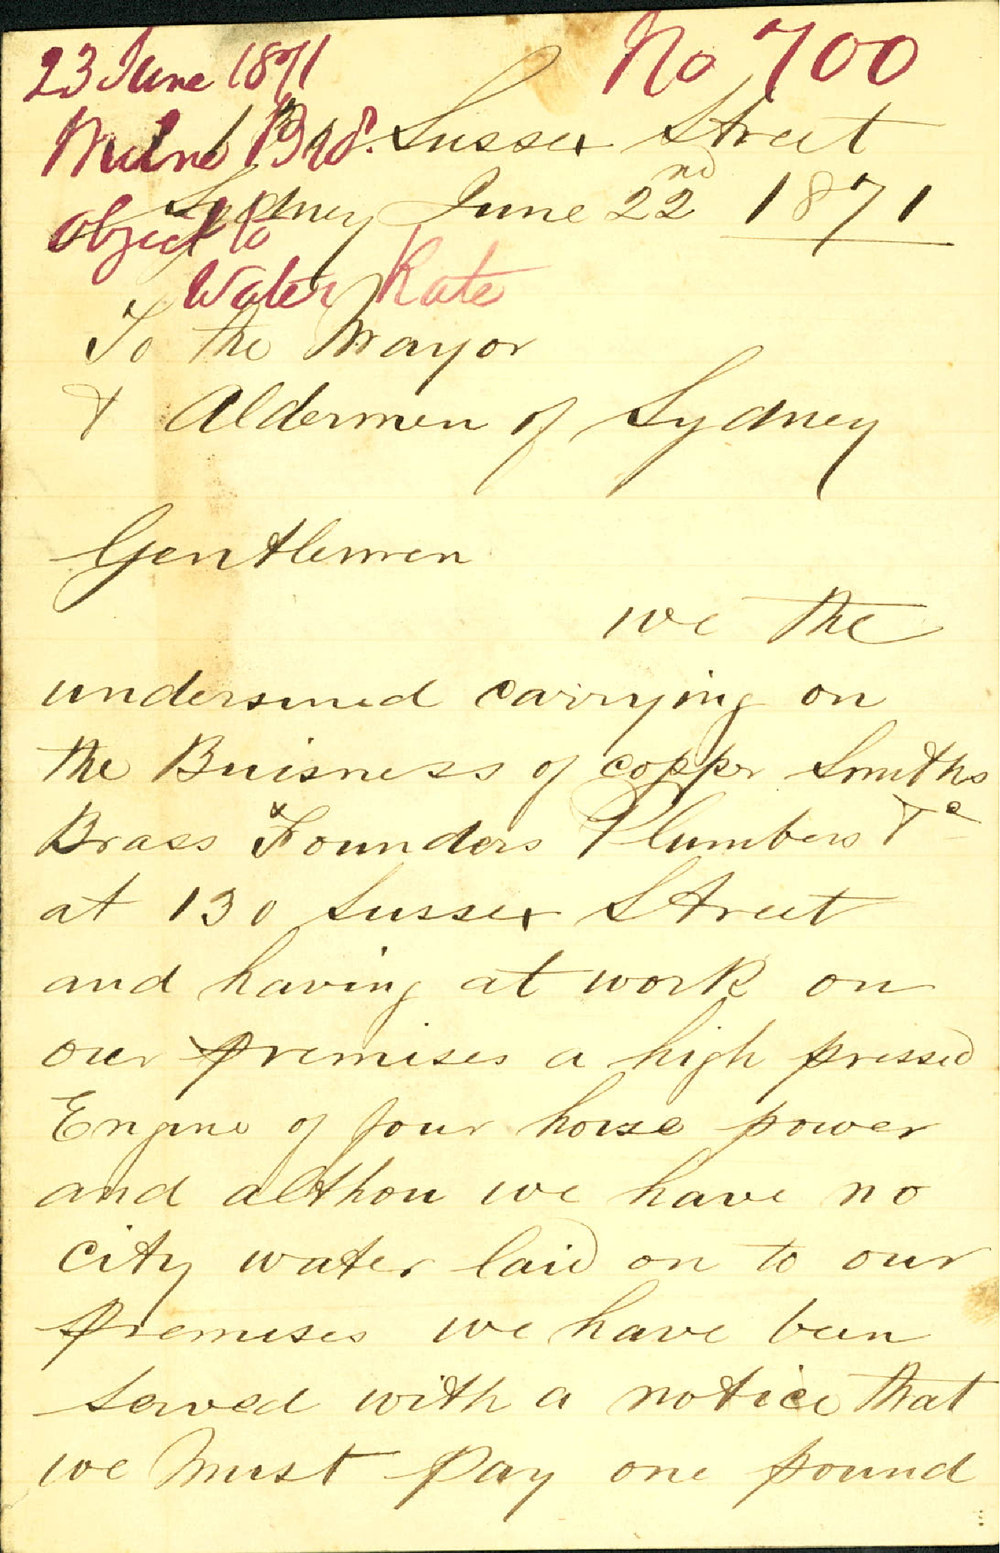 23 June 1871
No 700
Milne Bros.
Sussex Street
Sydney June 22nd 1871
Object to
Water Rate
To the Mayor
& Aldermen of Sydney
Gentlemen
we the
undersined carrying on
the Buisness of copper Smiths
Brass Founders Plumbers &c
at 130 Sussex Street
and having at work on
our premises a high pressed
Engine of four horse power
and althou we have no
city water laid on to our
premises we have been
served with a notice that
we must pay one pound